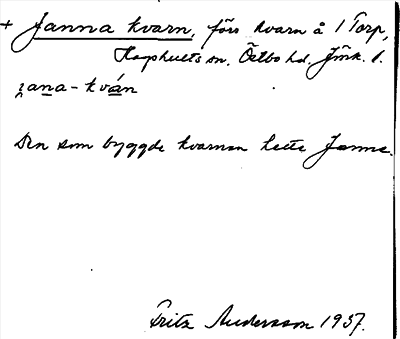 + Janna kvarn, förs kvarn å 1 Torp,
Kärda sn. Östbo hd. Jönk. l.
ʒana-kván
Den som byggde kvarnen hette Janne.
Fritz Andersson 1937.